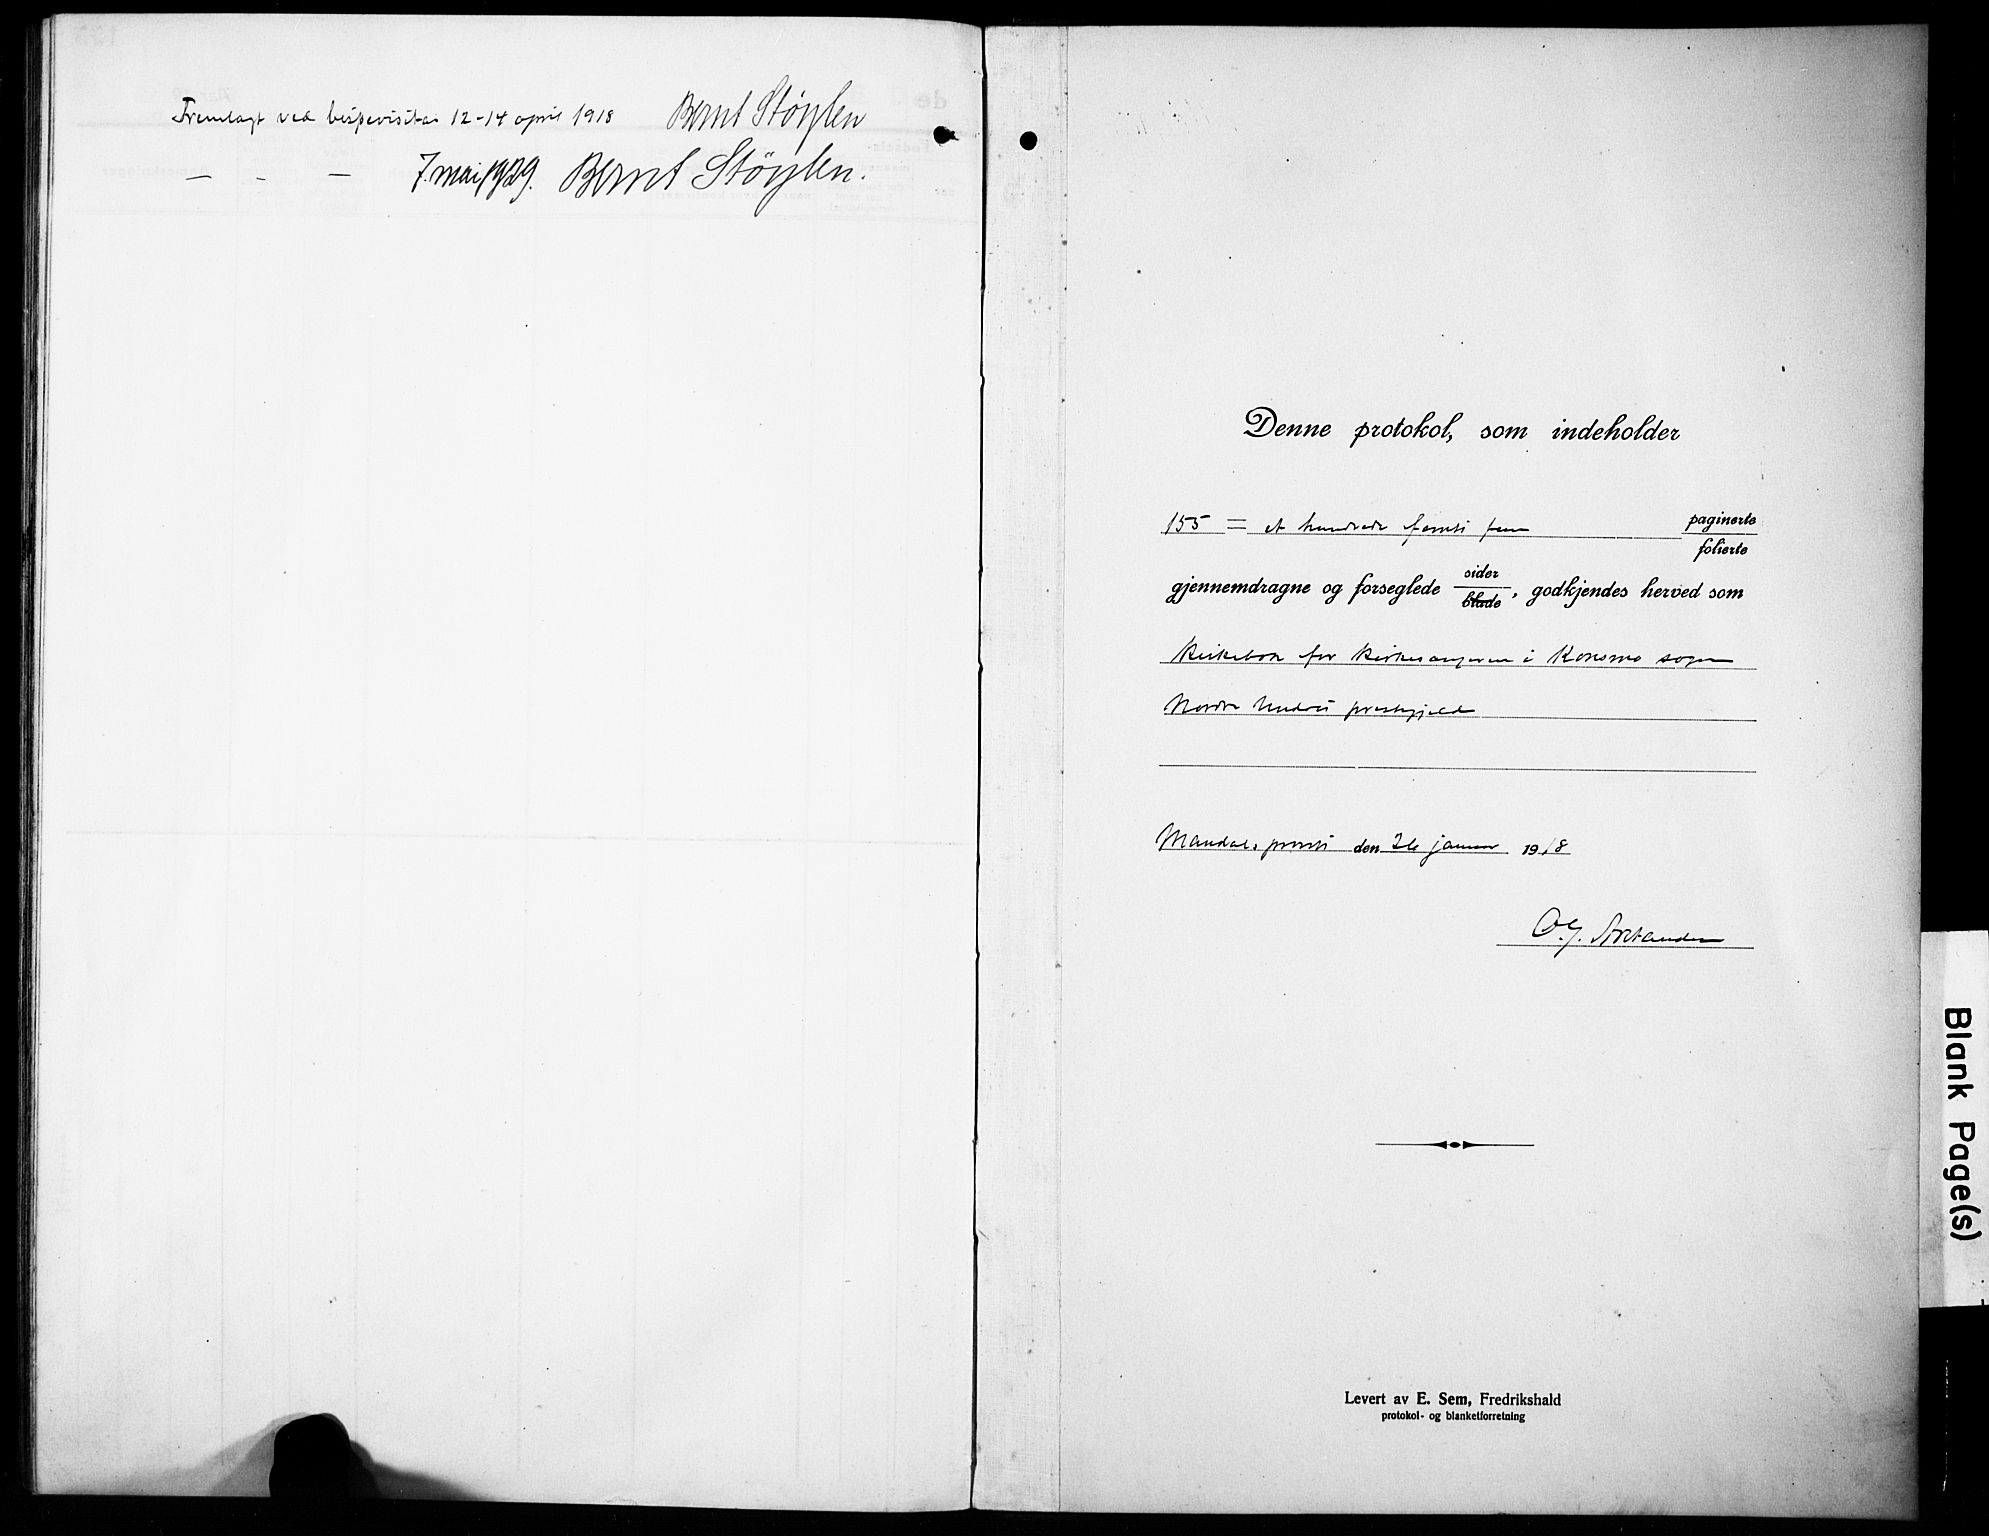 Fremlagt ved bispevisitas 12-14 april 1918 Bernt Støylen
— - — 7. mai 1929. Bernt Støylen.
Denne protokol, som indeholder
155 = et hundrede femti fem paginerte
folierte
gjennemdragne og forseglede sider
blade, godkjendes herved som
Kirkebok for kirkesangeren i Konsmo sogn
Nordre Undals prestegjeld
Mandals prosti den 26 januar 1918
Levert av E. Sem, Fredrikshald
protokol- og blanketforretning
Blank Page(s)